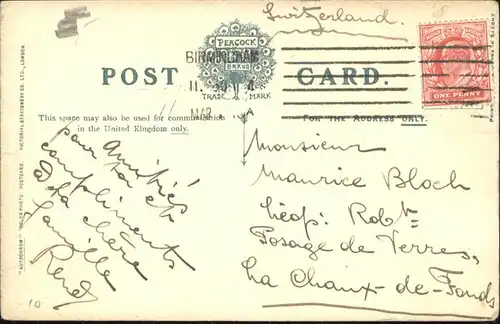 Switzerland.
PEACOCK
BRAND
TRADE MARK
BIRMINGHAM
MAR
POST CARD.
ONE PENNY
This space may also be used for communication
in the United Kingdom only.
FOR THE ADDRESS ONLY.
"AUTOCHROM" "COLOR PHOTO" POSTCARD. PICTORIAL STATIONERY CO. LTD., LONDON
amitiés
pour toi et
compliments
à ta chère
famille
René
Monsieur
Maurice Bloch
Posage de Verres,
La Chaux-de-Fonds